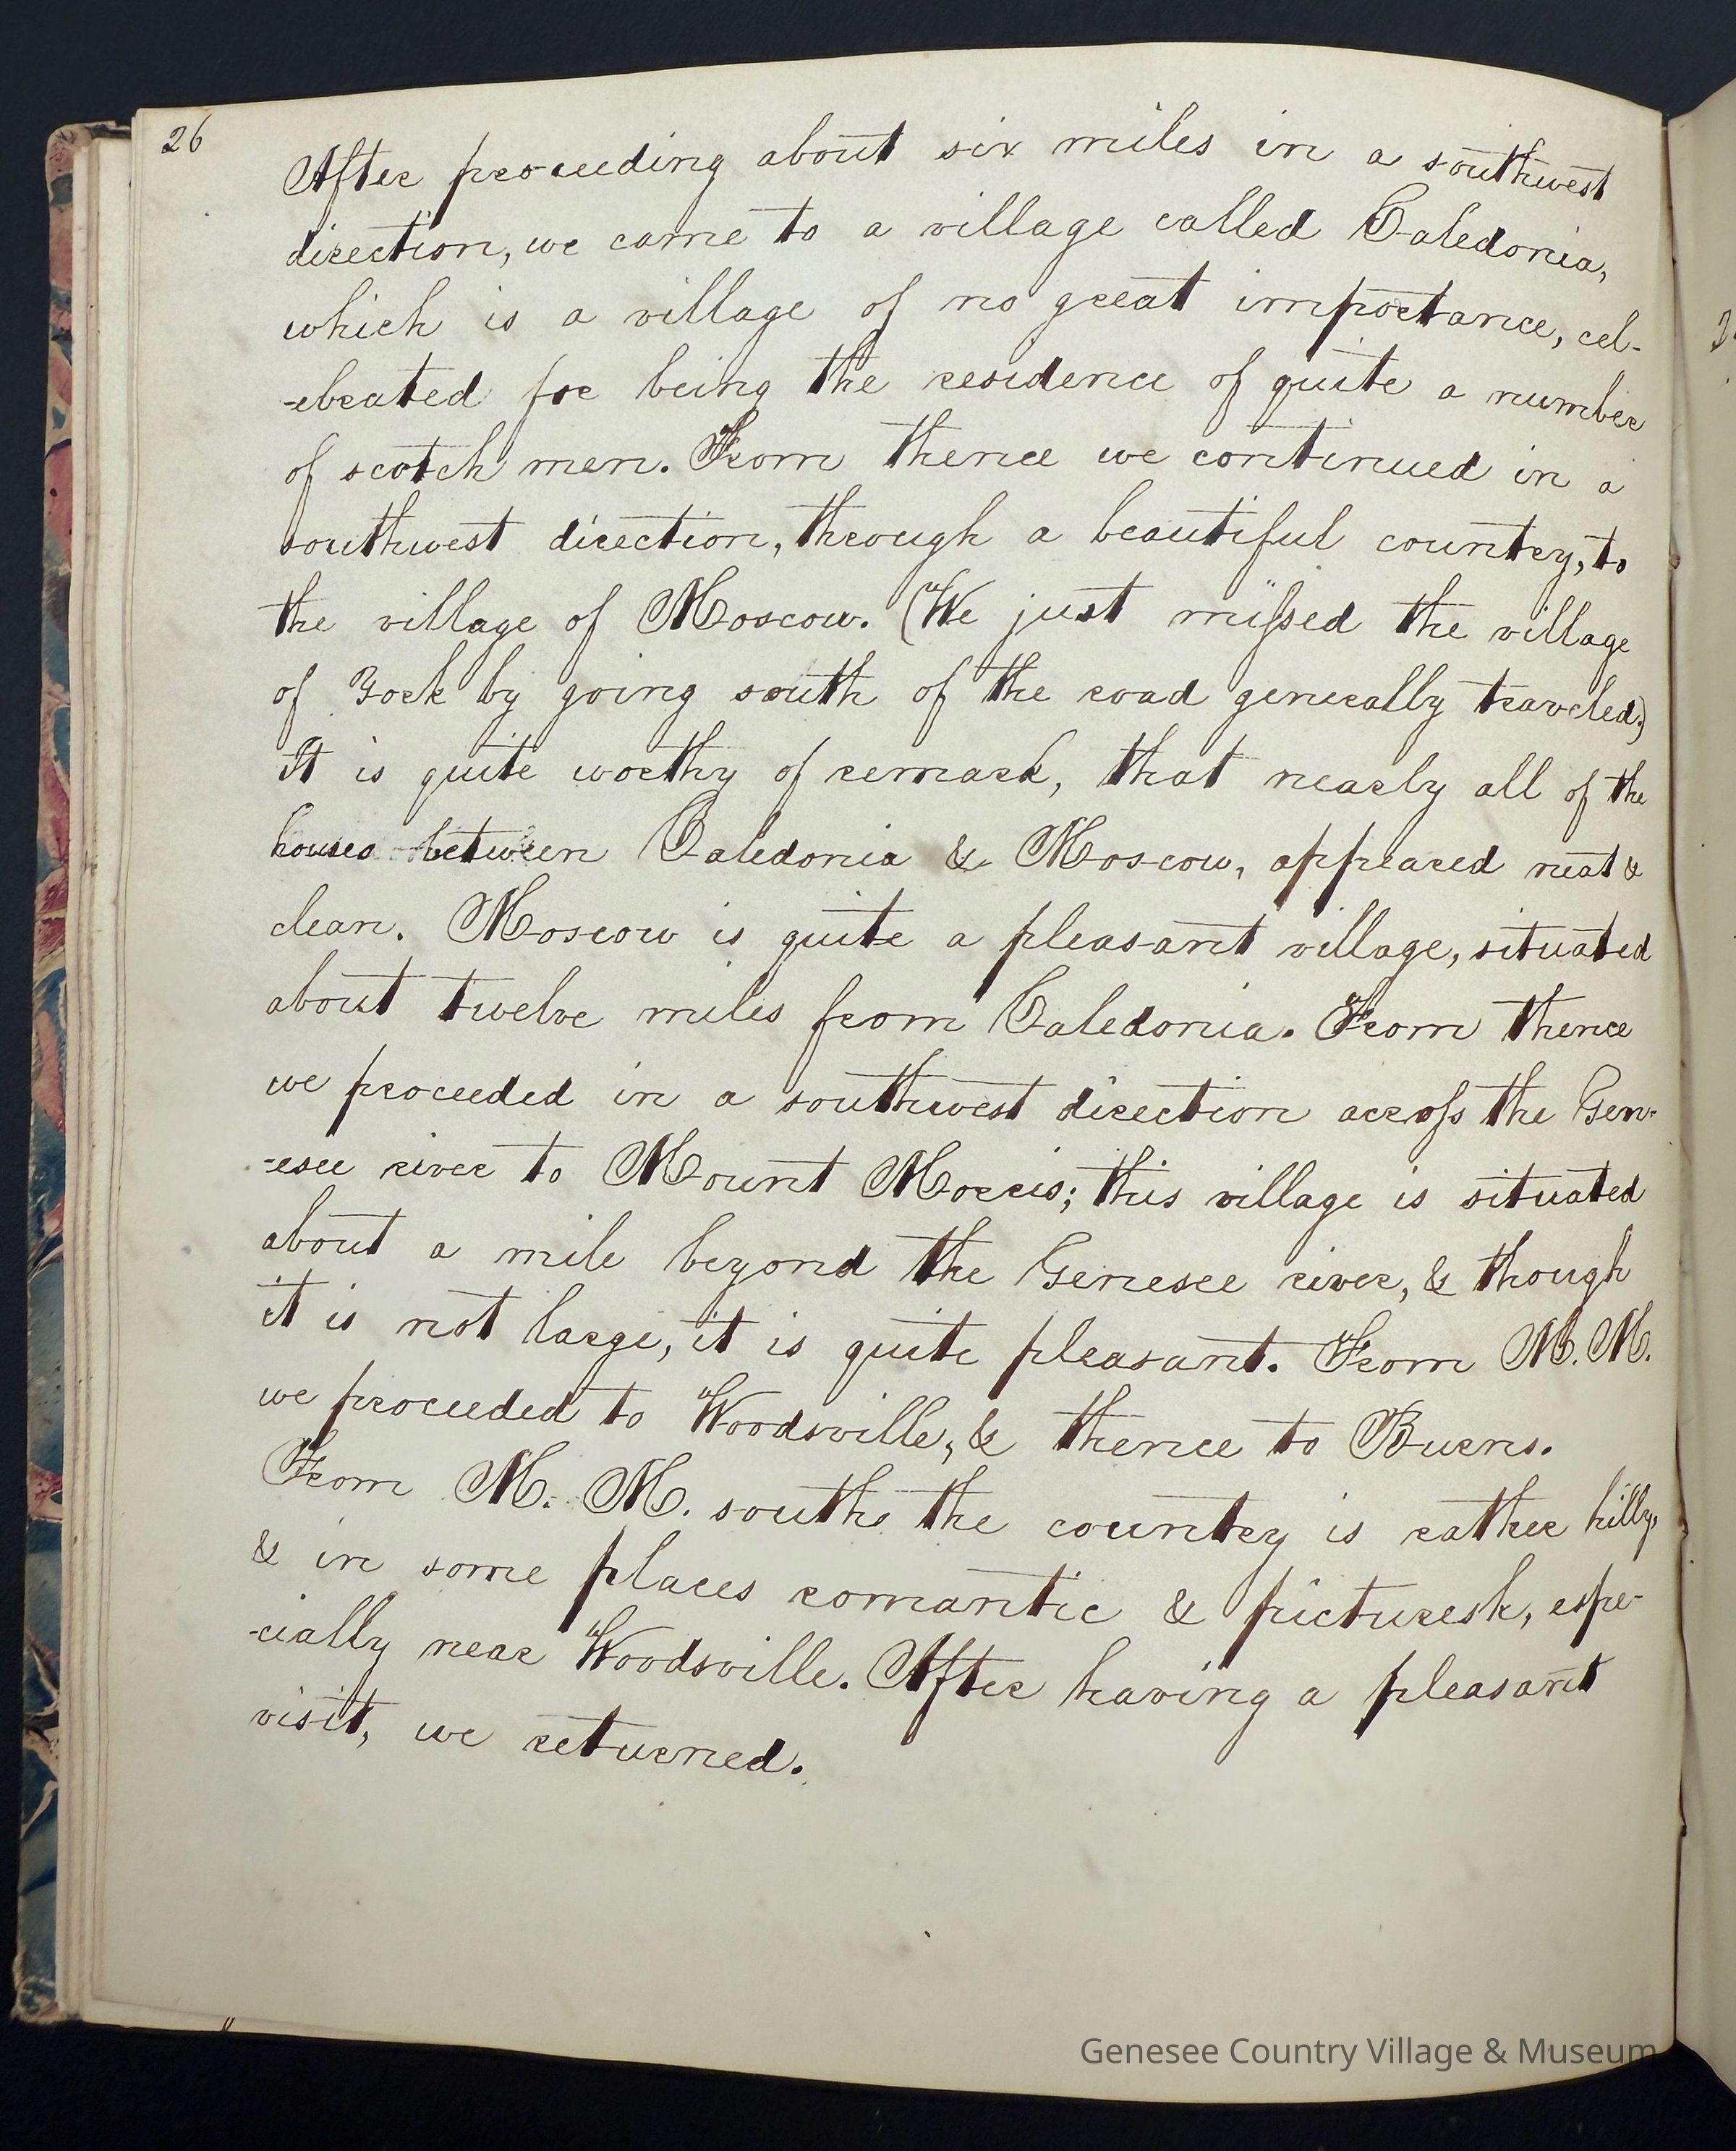 26
After proceeding about six miles in a southwest
direction, we came to a village called Caledonia,
which is a village of no great importance, cel-
-ebrated for being the residence of quite a number
of scotch men. From thence we continued in a
southwest direction, through a beautiful country, to
the village of Moscow. (We just missed the village
of York by going south of the road generally traveled.)
It is quite worthy of remark, that nearly all of the
houses between Caledonia & Moscow, appeared neat &
clean. Moscow is quite a pleasant village, situated
about twelve miles from Caledonia. From thence
we proceeded in a southwest direction across the Gen-
-esee river to Mount Morris; this village is situated
about a mile beyond the Genesee river, & though
it is not large, it is quite pleasant. From M. M.
we proceeded to Woodsville, & thence to Burns.
From M. M. south the country is rather hilly,
& in some places romantic & picturesk, espe-
-cially near Woodsville. After having a pleasant
visit, we returned.
Genesee Country Village & Museum